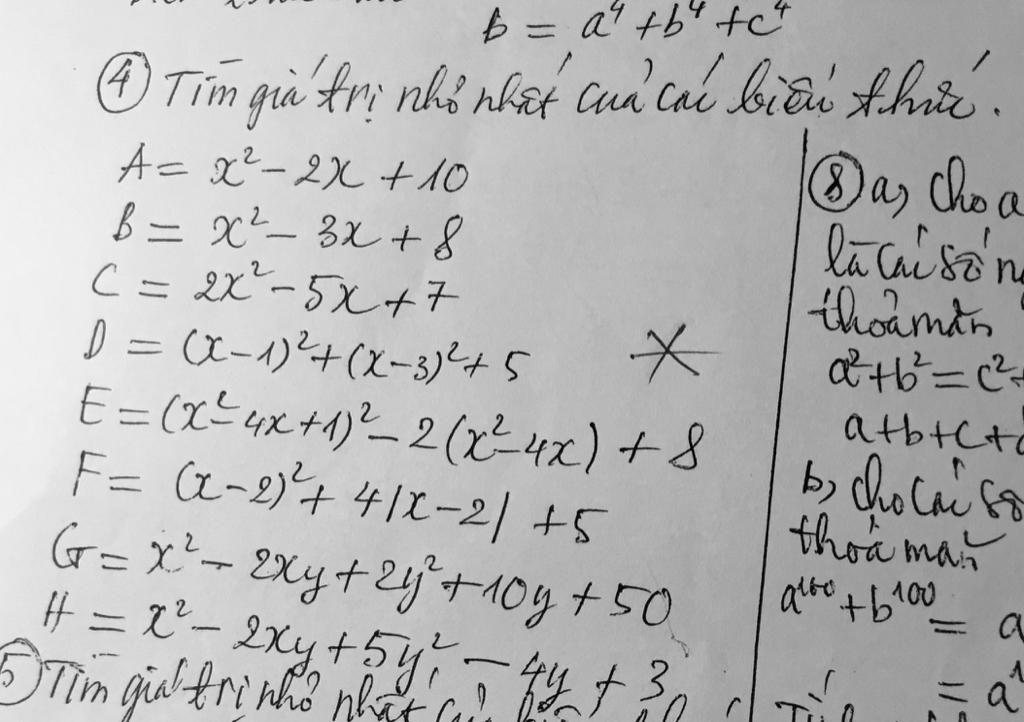 B = a⁴ + b⁴ + c⁴
④ Tìm giá trị nhỏ nhất của các biểu thức.
A = x² - 2x + 10
B = x² - 3x + 8
C = 2x² - 5x + 7
D = (x-1)² + (x-3)² + 5
E = (x² - 4x + 1)² - 2(x² - 4x) + 8
F = (x-2)² + 4|x-2| + 5
G = x² - 2xy + 2y² + 10y + 50
H = x² - 2xy + 5y² - 4y + 3
⑤ Tìm giá trị nhỏ nhất của
⑧ a, Cho a
là các số
thoả mãn
a² + b² = c²
a + b + c +
b, Cho các số
thoả mãn
a¹⁰⁰ + b¹⁰⁰
= a
= a¹